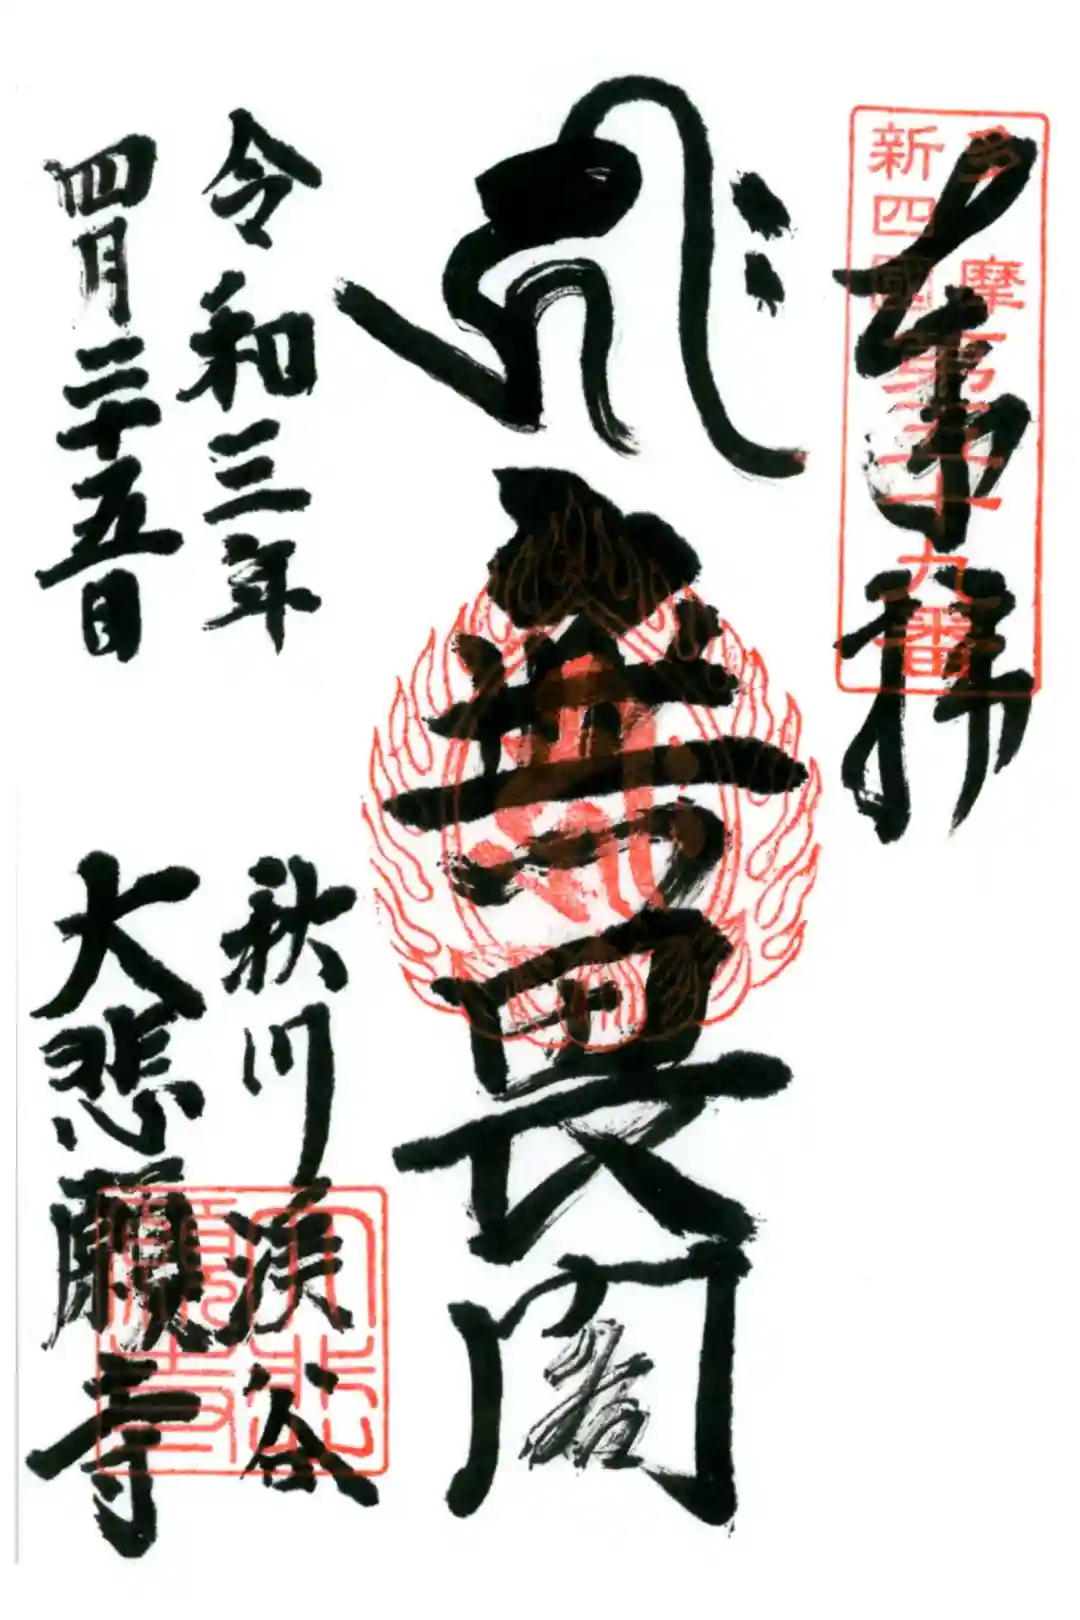 奉拝
多摩
新四國
第五十九番
無畏閣
令和三年
四月二十五日
秋川渓谷
大悲願寺
大悲
願寺